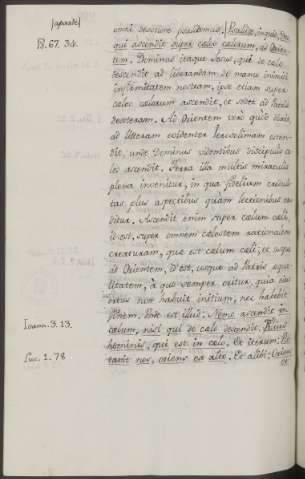 [aparte]
Ps. 67. 34.
omni devotione postulemus. Psallite, inquit, Deo,
qui ascendit super cœlos cœlorum, ad Orien-
tem. Dominus itaque Jesus, qui de cœlo
descendit ad liberandam de manu inimici
infirmitatem nostram, ipse etiam super
cœlos cœlorum ascendit, et sedet ad Patris
dexteram. Ad Orientem vero quod dixit,
ad litteram evidenter Jerosolimam osten-
dit, unde Dominus videntibus discipulis cœ-
los ascendit. Terra illa multis miraculis
plena invenitur, in qua fidelium creduli-
tas plus aspectibus quàm lectionibus eru-
ditur. Ascendit enim super cœlum cœli,
id est, super omnem cœlestem rationalem
creaturam, quæ est cœlum cœli, et usque
ad Orientem, id est, usque ad Patris æqua-
litatem, à quo semper oritur, quia ejus
ortus non habuit initium, nec habebit
finem. Inde est illud: Nemo ascendit in
Ioann. 3. 13.
cœlum, nisi qui de cœlo descendit, Filius
hominis, qui est in cœlo. Et iterum: Visi-
Luc. 1. 78
tavit nos, oriens ex alto. Et alibi: Oriens